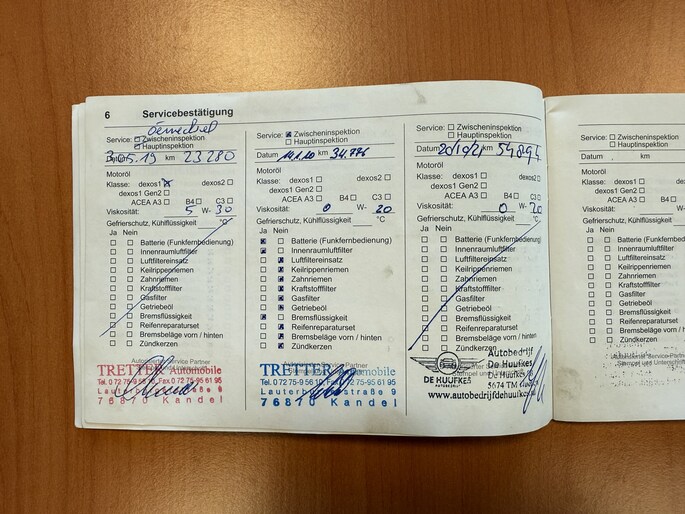 6 Servicebestätigung
Service: Zwischeninspektion
Hauptinspektion
05.19 km 23280
Motoröl
Klasse: dexos1 dexos2
dexos1 Gen2
ACEA A3 B4 C3
Viskosität: 5 W- 30
Gefrierschutz, Kühlflüssigkeit °C
Ja Nein
Batterie (Funkfernbedienung)
Innenraumluftfilter
Luftfiltereinsatz
Keilrippenriemen
Zahnriemen
Kraftstofffilter
Gasfilter
Getriebeöl
Bremsflüssigkeit
Reifenreparaturset
Bremsbeläge vorn / hinten
Zündkerzen
TRETTER Automobile
Tel. 0 72 75-9 56 10, Fax 0 72 75-95 61 95
76870 Kandel
Service: Zwischeninspektion
Hauptinspektion
Datum km 34.776
Motoröl
Klasse: dexos1 dexos2
dexos1 Gen2
ACEA A3 B4 C3
Viskosität: 0 W- 20
Gefrierschutz, Kühlflüssigkeit °C
Ja Nein
Batterie (Funkfernbedienung)
Innenraumluftfilter
Luftfiltereinsatz
Keilrippenriemen
Zahnriemen
Kraftstofffilter
Gasfilter
Getriebeöl
Bremsflüssigkeit
Reifenreparaturset
Bremsbeläge vorn / hinten
Zündkerzen
TRETTER Automobile
Tel. 0 72 75-9 56 10, Fax 0 72 75-95 61 95
76870 Kandel
Service: Zwischeninspektion
Hauptinspektion
Datum 20/10/21 km 54894
Motoröl
Klasse: dexos1 dexos2
dexos1 Gen2
ACEA A3 B4 C3
Viskosität: 0 W- 20
Gefrierschutz, Kühlflüssigkeit °C
Ja Nein
Batterie (Funkfernbedienung)
Innenraumluftfilter
Luftfiltereinsatz
Keilrippenriemen
Zahnriemen
Kraftstofffilter
Gasfilter
Getriebeöl
Bremsflüssigkeit
Reifenreparaturset
Bremsbeläge vorn / hinten
Zündkerzen
DE HUUFKES
Autobedrijf
De Huufkes
De Huufkes
5674 TM
www.autobedrijfdehuufkes
Service: Zw
Ha
Datum
Motoröl
Klasse: dexos1
dexos1 Gen
ACEA A
Viskosität:
Gefrierschutz, Kühl
Ja Nein
Batterie (F
Innenraum
Luftfilterei
Keilrippen
Zahnriem
Kraftstoff
Gasfilter
Getriebeö
Bremsflüs
Reifenrep
Bremsbel
Zündkerz